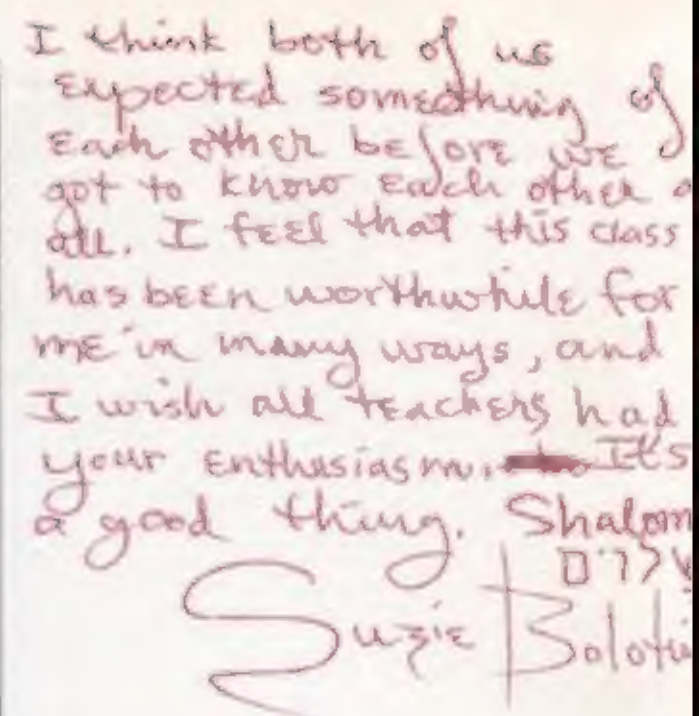 I think both of us
expected something of
each other before we
got to know each other a
all. I feel that this class
has been worthwhile for
me in many ways, and
I wish all teachers had
your enthusiasm. It's
a good thing. Shalom
Suzie